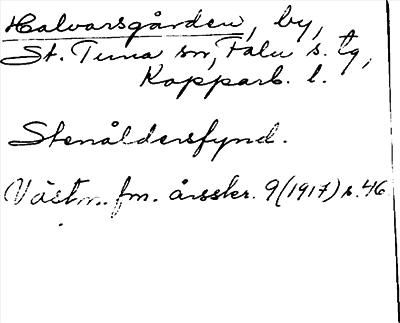 Halvarsgården, by,
St. Tuna sn, Falu s. tg,
Kopparb. l.
Stenåldersfynd.
Västm. fm. årsskr. 9(1917) s. 46